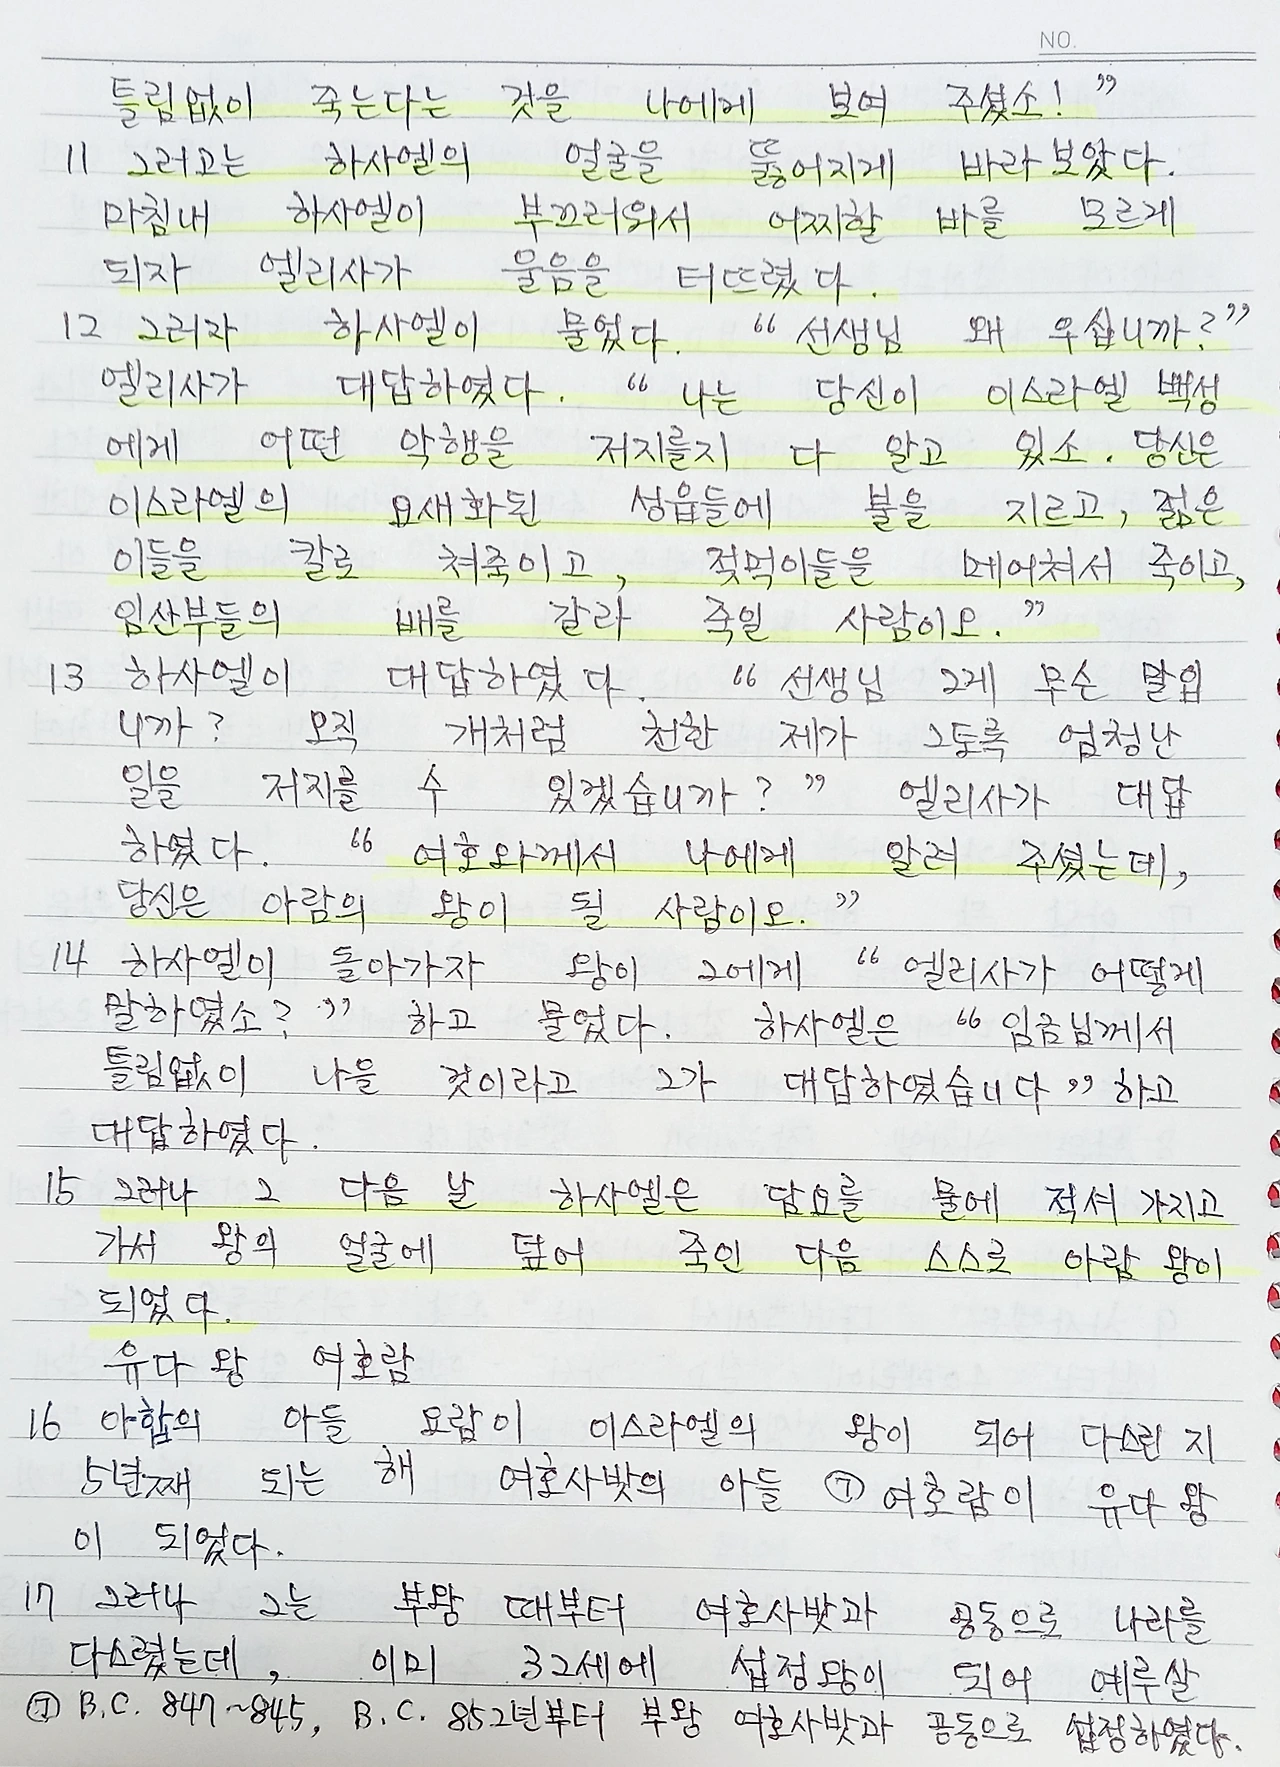 NO.
틀림없이 죽는다는 것을 나에게 보여 주셨소!”
11 그러고는 하사엘의 얼굴을 뚫어지게 바라보았다.
마침내 하사엘이 부끄러워서 어찌할 바를 모르게
되자 엘리사가 울음을 터뜨렸다.
12 그러자 하사엘이 물었다. “선생님 왜 우십니까?”
엘리사가 대답하였다. “나는 당신이 이스라엘 백성
에게 어떤 악행을 저지를지 다 알고 있소. 당신은
이스라엘의 요새화된 성읍들에 불을 지르고, 젊은
이들을 칼로 쳐죽이고, 젖먹이들을 메어쳐서 죽이고,
임산부들의 배를 갈라 죽일 사람이오.”
13 하사엘이 대답하였다. “선생님 그게 무슨 말입
니까? 오직 개처럼 천한 제가 그토록 엄청난
일을 저지를 수 있겠습니까?” 엘리사가 대답
하였다. “여호와께서 나에게 알려 주셨는데,
당신은 아람의 왕이 될 사람이오.”
14 하사엘이 돌아가자 왕이 그에게 “엘리사가 어떻게
말하였소?” 하고 물었다. 하사엘은 “임금님께서
틀림없이 나을 것이라고 그가 대답하였습니다” 하고
대답하였다.
15 그러나 그 다음 날 하사엘은 담요를 물에 적셔 가지고
가서 왕의 얼굴에 덮어 죽인 다음 스스로 아람 왕이
되었다.
유다 왕 여호람
16 아합의 아들 요람이 이스라엘의 왕이 되어 다스린 지
5년째 되는 해 여호사밧의 아들 ⑦ 여호람이 유다 왕
이 되었다.
17 그러나 그는 부왕 때부터 여호사밧과 공동으로 나라를
다스렸는데, 이미 32세에 섭정왕이 되어 예루살
⑦ B.C. 847~845, B.C. 852년부터 부왕 여호사밧과 공동으로 섭정하였다.